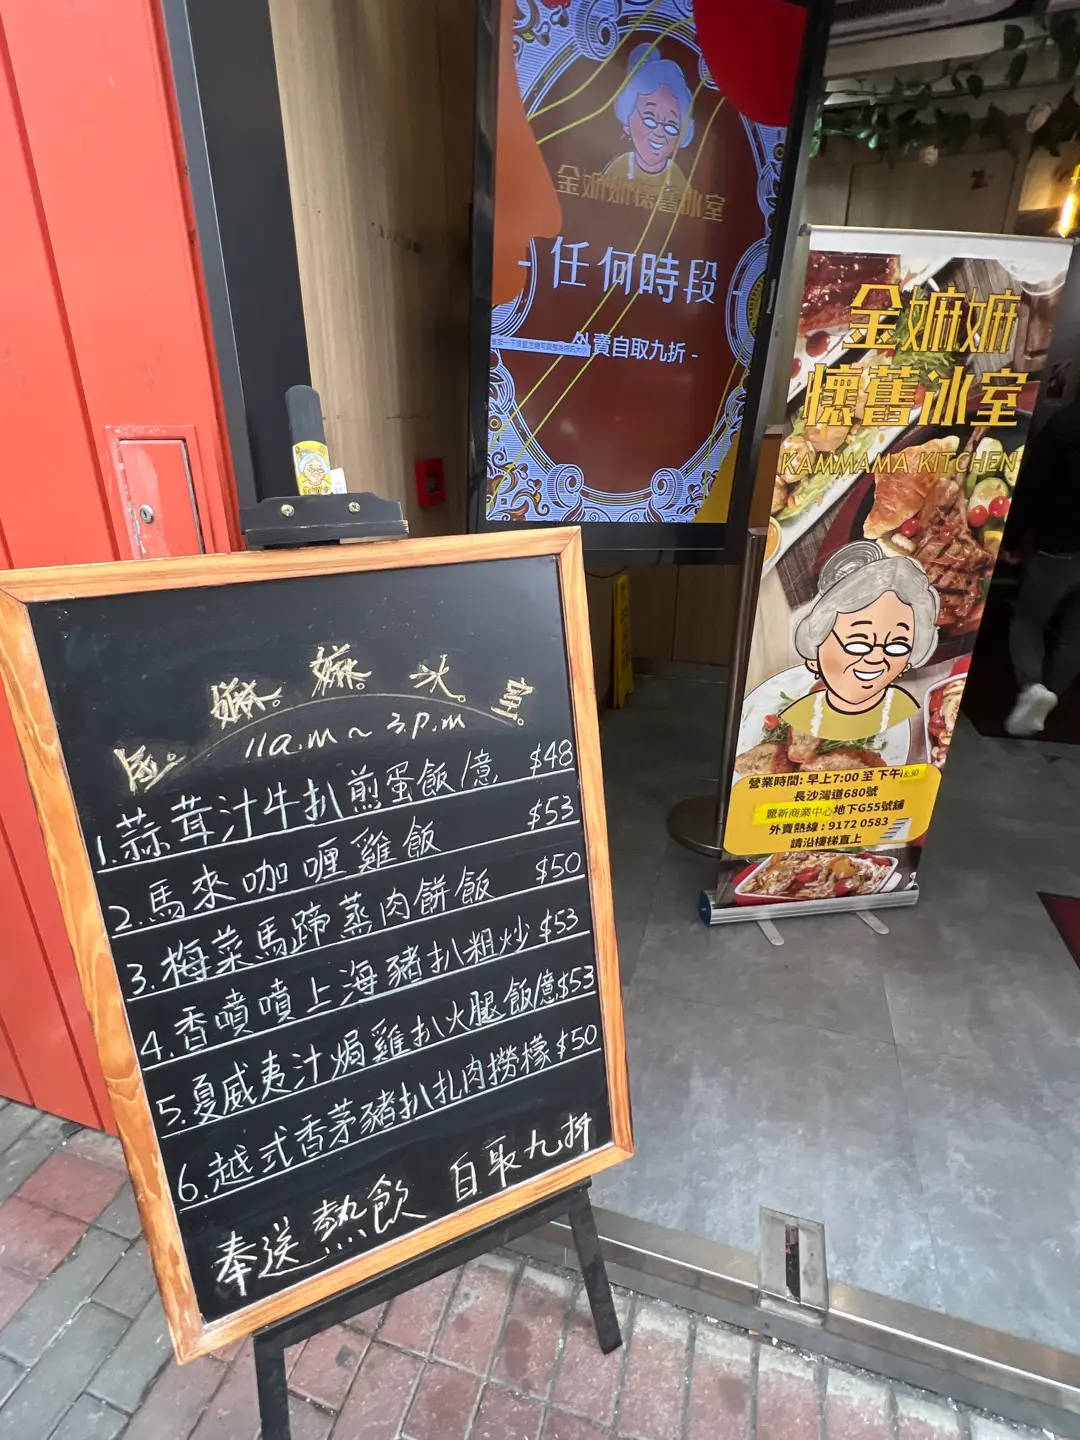 金嫲嫲懷舊冰室
- 任何時段 -
外賣自取九折 -
金嫲嫲
懷舊冰室
KAMMAMA KITCHEN
營業時間: 早上7:00 至 下午8:30
長沙灣道680號
麗新商業中心地下G55號舖
外賣熱線 : 9172 0583
請沿樓梯直上
金嫲嫲冰室
11a.m~3.p.m
1.蒜茸汁牛扒煎蛋飯/意 $48
2.馬來咖喱雞飯 $53
3.梅菜馬蹄蒸肉餅飯 $50
4.香噴噴上海豬扒粗炒 $53
5.夏威夷汁焗雞扒火腿飯/意 $53
6.越式香茅豬扒扎肉撈檬 $50
奉送熱飲 自取九折